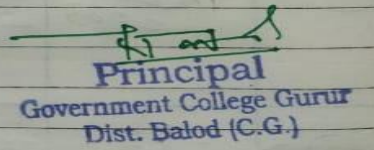 Principal
Government College Gurur
Dist. Balod (C.G.)